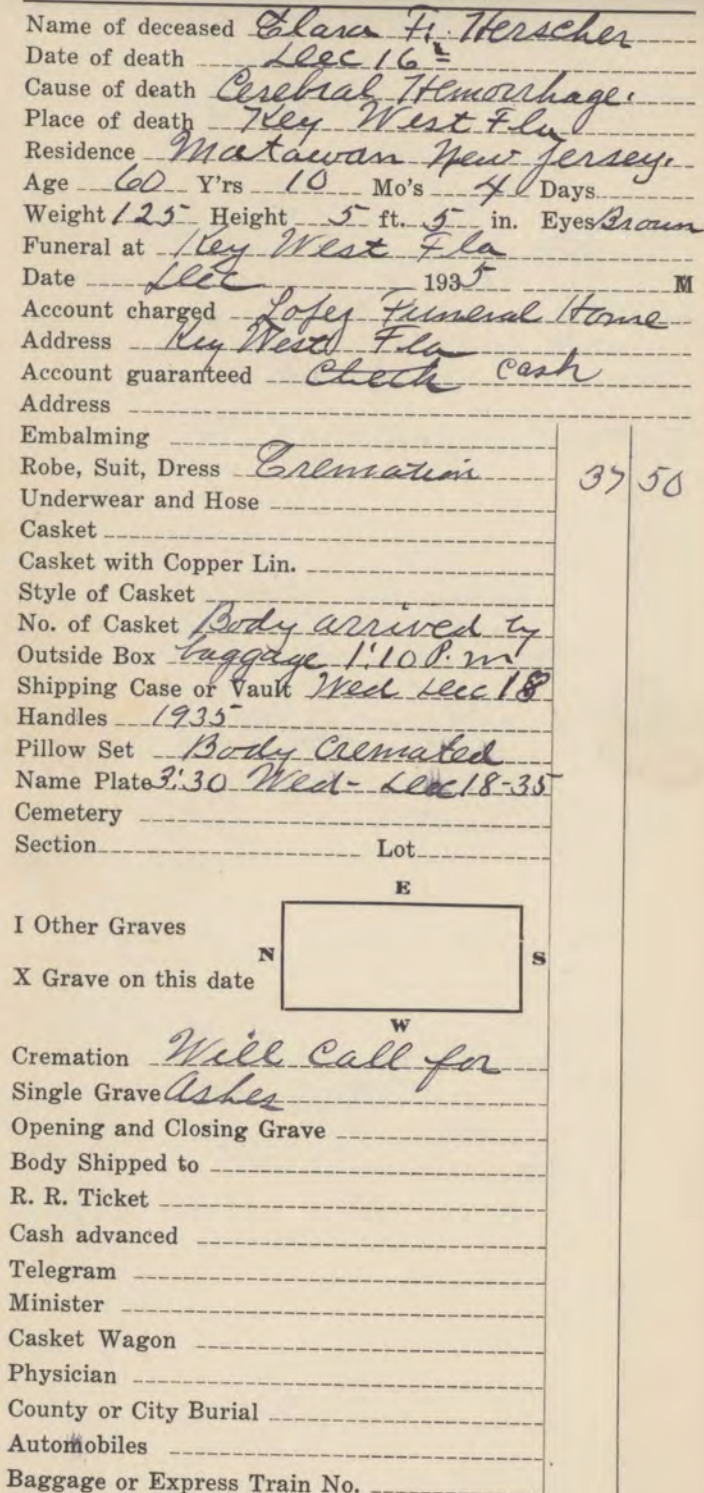 Name of deceased Clara H. Herscher
Date of death Dec 16th
Cause of death Cerebral Hemorrhage.
Place of death Key West Fla
Residence Matawan New Jersey.
Age 60 Y'rs 10 Mo's 4 Days
Weight 125 Height 5 ft. 5 in. Eyes Brown
Funeral at Key West Fla
Date Dec 1935 M
Account charged Lopez Funeral Home
Address Key West Fla
Account guaranteed Check Cash
Address
Embalming
Robe, Suit, Dress Cremation 37 50
Underwear and Hose
Casket
Casket with Copper Lin.
Style of Casket
No. of Casket Body arrived by
Outside Box baggage 1:10 P.m
Shipping Case or Vault Wed Dec 18
Handles 1935
Pillow Set Body Cremated
Name Plate 3:30 Wed- Dec 18-35
Cemetery
Section Lot
E
I Other Graves
N S
X Grave on this date
W
Cremation Will Call for
Single Grave Ashes
Opening and Closing Grave
Body Shipped to
R. R. Ticket
Cash advanced
Telegram
Minister
Casket Wagon
Physician
County or City Burial
Automobiles
Baggage or Express Train No.